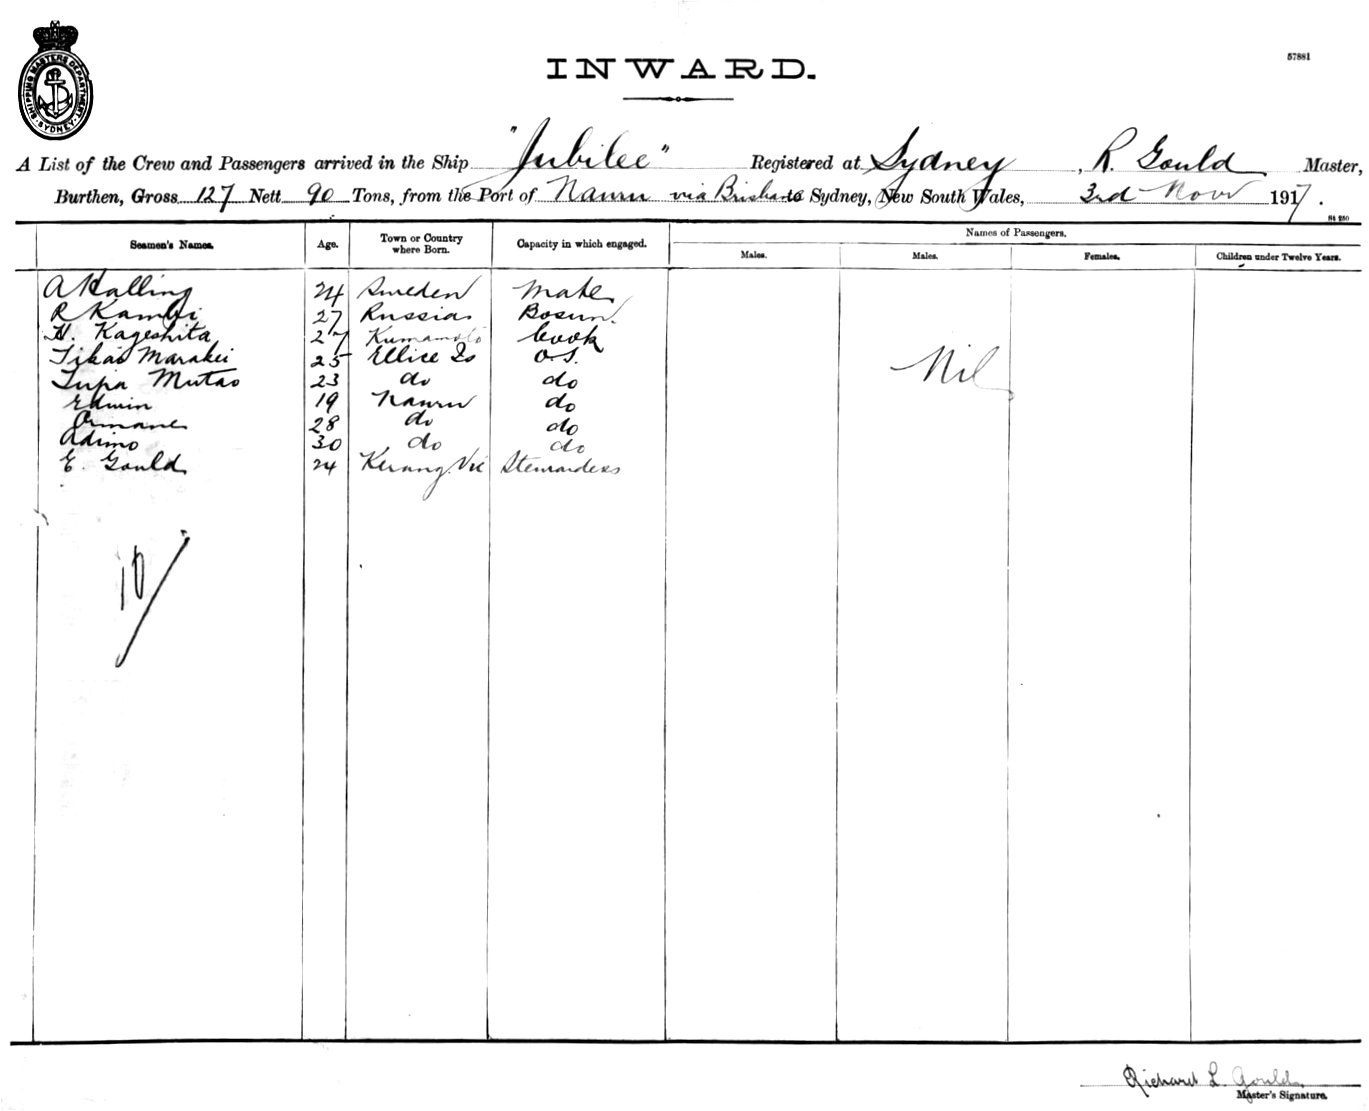 SHIPPING MASTERS DEPARTMENT
SYDNEY
INWARD.
57881
A List of the Crew and Passengers arrived in the Ship "Jubilee" Registered at Sydney, R. Gould Master,
Burthen, Gross 127 Nett 90 Tons, from the Port of Nauru via Brisbane to Sydney, New South Wales, 3rd Novr 1917.
St 250
Seamen's Names. Age. Town or Country where Born. Capacity in which engaged. Names of Passengers.
Males. Males. Females. Children under Twelve Years.
A Halling 24 Sweden Mate
R 27 Russia Bosun
H. Kageshita 27 Kumamoto Cook
Tikao Marakei 25 Ellice Is O.S.
Tupa Mutao 23 do do
Nil
Edwin 19 Nauru do
28 do do
Adimo 30 do do
E. Gould 24 Kerang. Vic Stewardess
10
Richard L. Gould
Master's Signature.